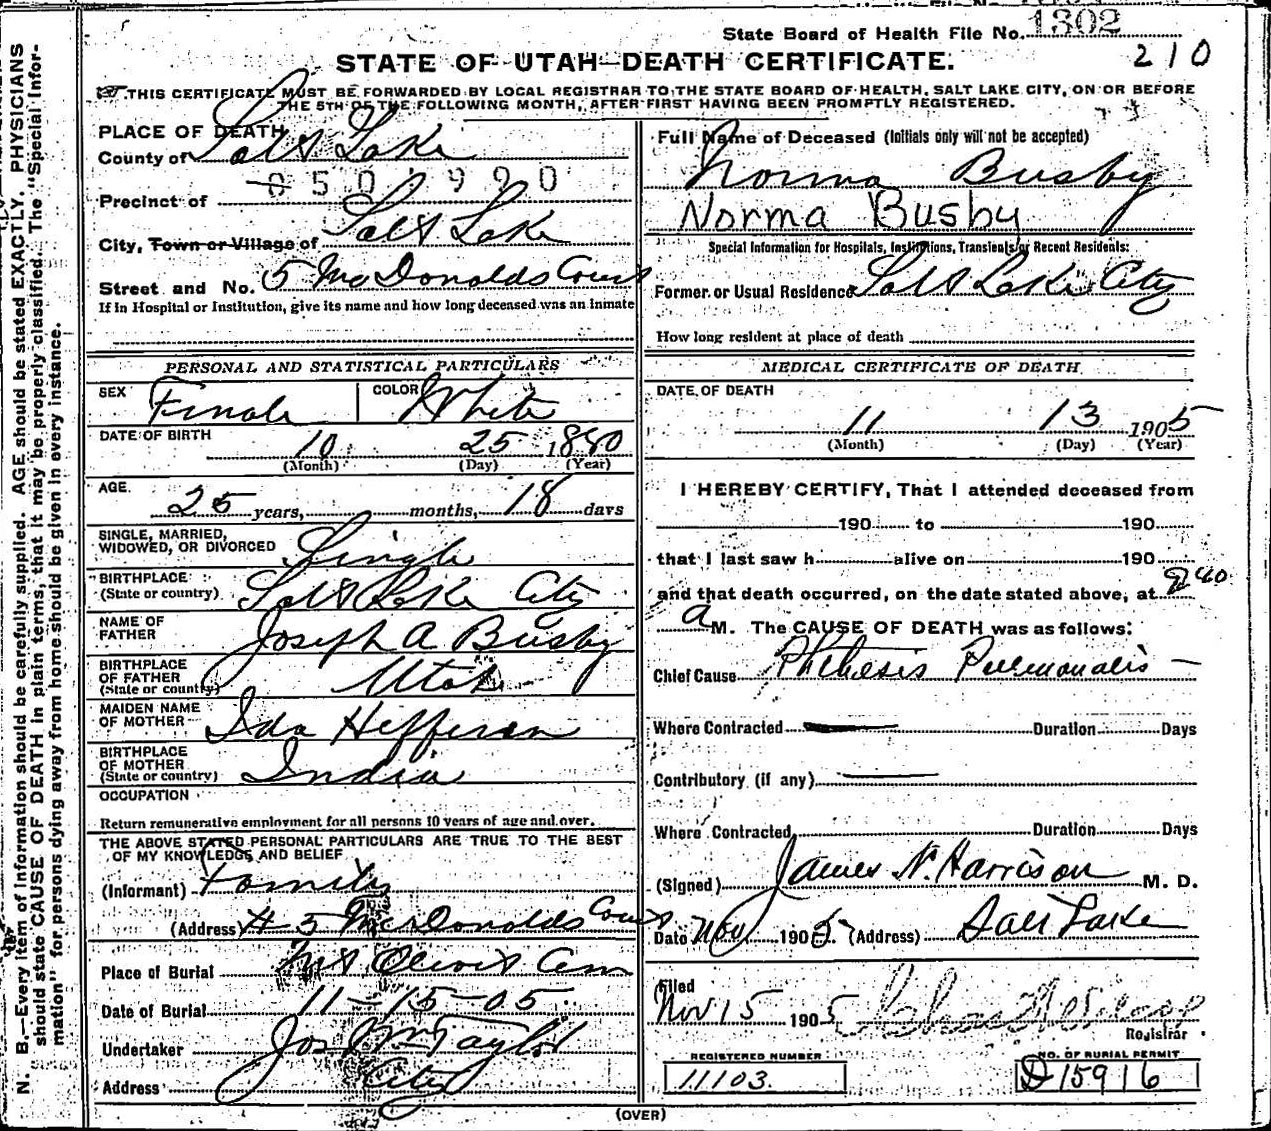 State Board of Health File No. 1302
210
STATE OF UTAH—DEATH CERTIFICATE.
THIS CERTIFICATE MUST BE FORWARDED BY LOCAL REGISTRAR TO THE STATE BOARD OF HEALTH, SALT LAKE CITY, ON OR BEFORE
THE 5TH OF THE FOLLOWING MONTH, AFTER FIRST HAVING BEEN PROMPTLY REGISTERED.
N. B.—Every item of information should be carefully supplied. AGE should be stated EXACTLY. PHYSICIANS
should state CAUSE OF DEATH in plain terms, that it may be properly classified. The "Special Infor-
mation" for persons dying away from home should be given in every instance.
PLACE OF DEATH
County of Salt Lake
0501990
Precinct of
City, Town or Village of Salt Lake
Street and No. 5 McDonalds Court
If in Hospital or Institution, give its name and how long deceased was an inmate
PERSONAL AND STATISTICAL PARTICULARS
SEX Female COLOR White
DATE OF BIRTH 10 25 1880
(Month) (Day) (Year)
AGE 25 years, months, 18 days
SINGLE, MARRIED,
WIDOWED, OR DIVORCED Single
BIRTHPLACE
(State or country) Salt Lake City
NAME OF
FATHER Joseph A Busby
BIRTHPLACE
OF FATHER
(State or country) Utah
MAIDEN NAME
OF MOTHER Ida Hefferan
BIRTHPLACE
OF MOTHER
(State or country) India
OCCUPATION
Return remunerative employment for all persons 10 years of age and over.
THE ABOVE STATED PERSONAL PARTICULARS ARE TRUE TO THE BEST
OF MY KNOWLEDGE AND BELIEF
(Informant) Family
(Address) # 5 McDonalds Court
Place of Burial Mt Olivet Cem
Date of Burial 11-15-05
Undertaker Jos Wm Taylor
Address City
Full Name of Deceased (Initials only will not be accepted)
Norma Busby
Norma Busby
Special Information for Hospitals, Institutions, Transients or Recent Residents:
Former or Usual Residence Salt Lake City
How long resident at place of death
MEDICAL CERTIFICATE OF DEATH
DATE OF DEATH
11 13 1905
(Month) (Day) (Year)
I HEREBY CERTIFY, That I attended deceased from
190 to 190
that I last saw h alive on 190
and that death occurred, on the date stated above, at 940
a M. The CAUSE OF DEATH was as follows:
Chief Cause Phthesis Pulmonalis
Where Contracted Duration Days
Contributory (if any)
Where Contracted Duration Days
(Signed) James N. Harrison M. D.
Date Nov 1905 (Address) Salt Lake
Filed
Nov 15 1905
Registrar
REGISTERED NUMBER
11103.
NO. OF BURIAL PERMIT
D 15916
(OVER)